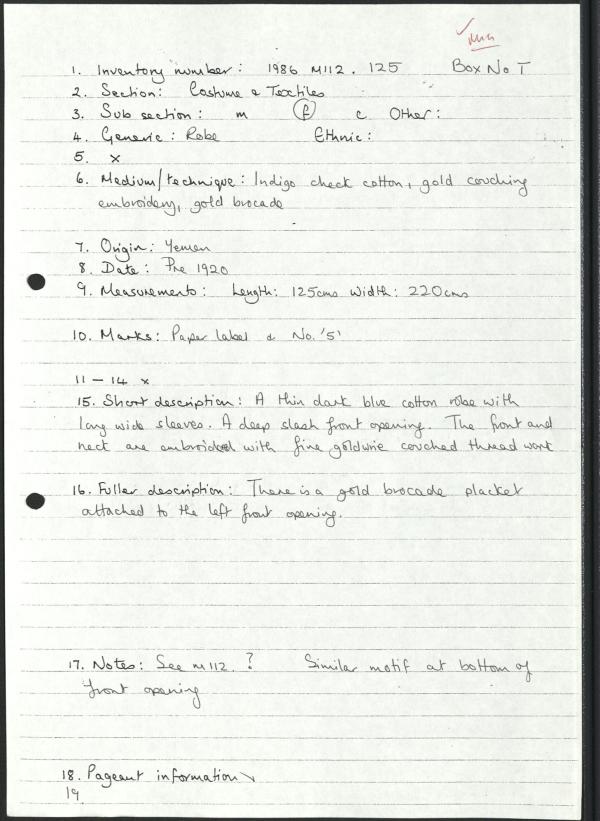 1. Inventory number: 1986 M112. 125 Box No T
2. Section: Costume & Textiles
3. Sub section: m f c Other:
4. Generic: Robe Ethnic:
5. x
6. Medium/technique: Indigo check cotton, gold couching
embroidery, gold brocade
7. Origin: Yemen
8. Date: Pre 1920
9. Measurements: Length: 125cms Width: 220cms
10. Marks: Paper label & No. '5'
11 - 14 x
15. Short description: A thin dark blue cotton robe with
long wide sleeves. A deep slash front opening. The front and
neck are embroided with fine goldwire couched thread work
16. Fuller description: There is a gold brocade placket
attached to the left front opening.
17. Notes: See M112. ? Similar motif at bottom of
front opening
18. Pageant information
19.